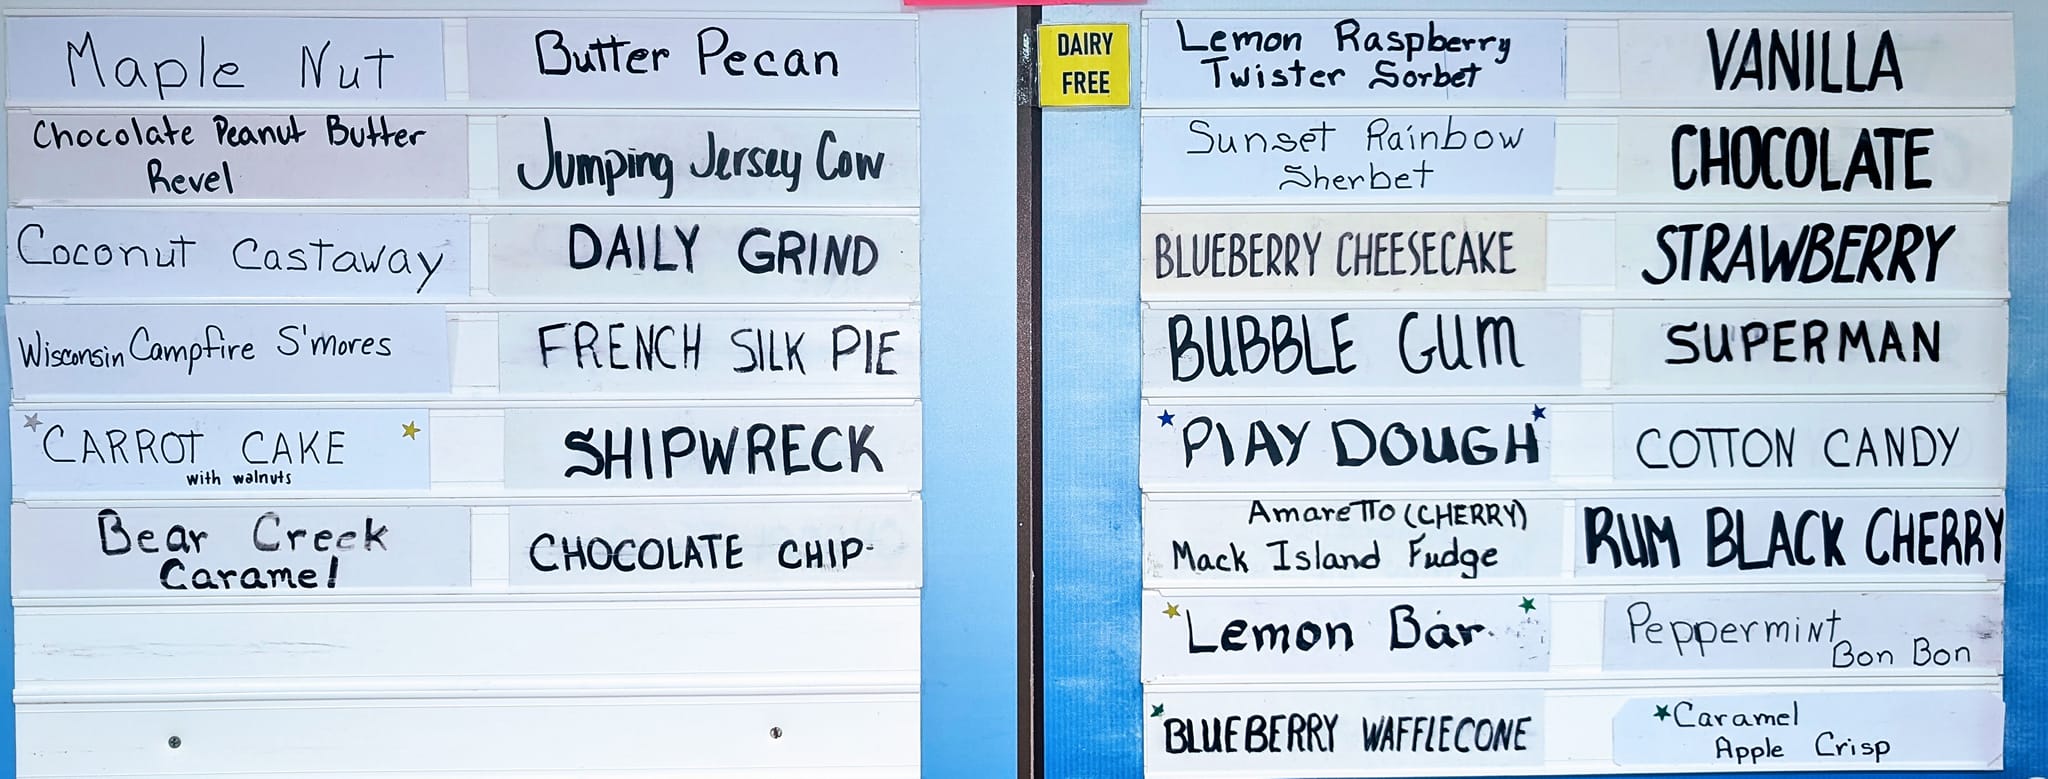 Maple Nut
Butter Pecan
Chocolate Peanut Butter
Revel
Jumping Jersey Cow
Coconut Castaway
DAILY GRIND
Wisconsin Campfire S'mores
FRENCH SILK PIE
CARROT CAKE
with walnuts
SHIPWRECK
Bear Creek
Caramel
CHOCOLATE CHIP
DAIRY
FREE
Lemon Raspberry
Twister Sorbet
VANILLA
Sunset Rainbow
Sherbet
CHOCOLATE
BLUEBERRY CHEESECAKE
STRAWBERRY
BUBBLE GUM
SUPERMAN
PLAY DOUGH
COTTON CANDY
Amaretto (CHERRY)
Mack Island Fudge
RUM BLACK CHERRY
Lemon Bar
Peppermint
Bon Bon
BLUEBERRY WAFFLECONE
Caramel
Apple Crisp